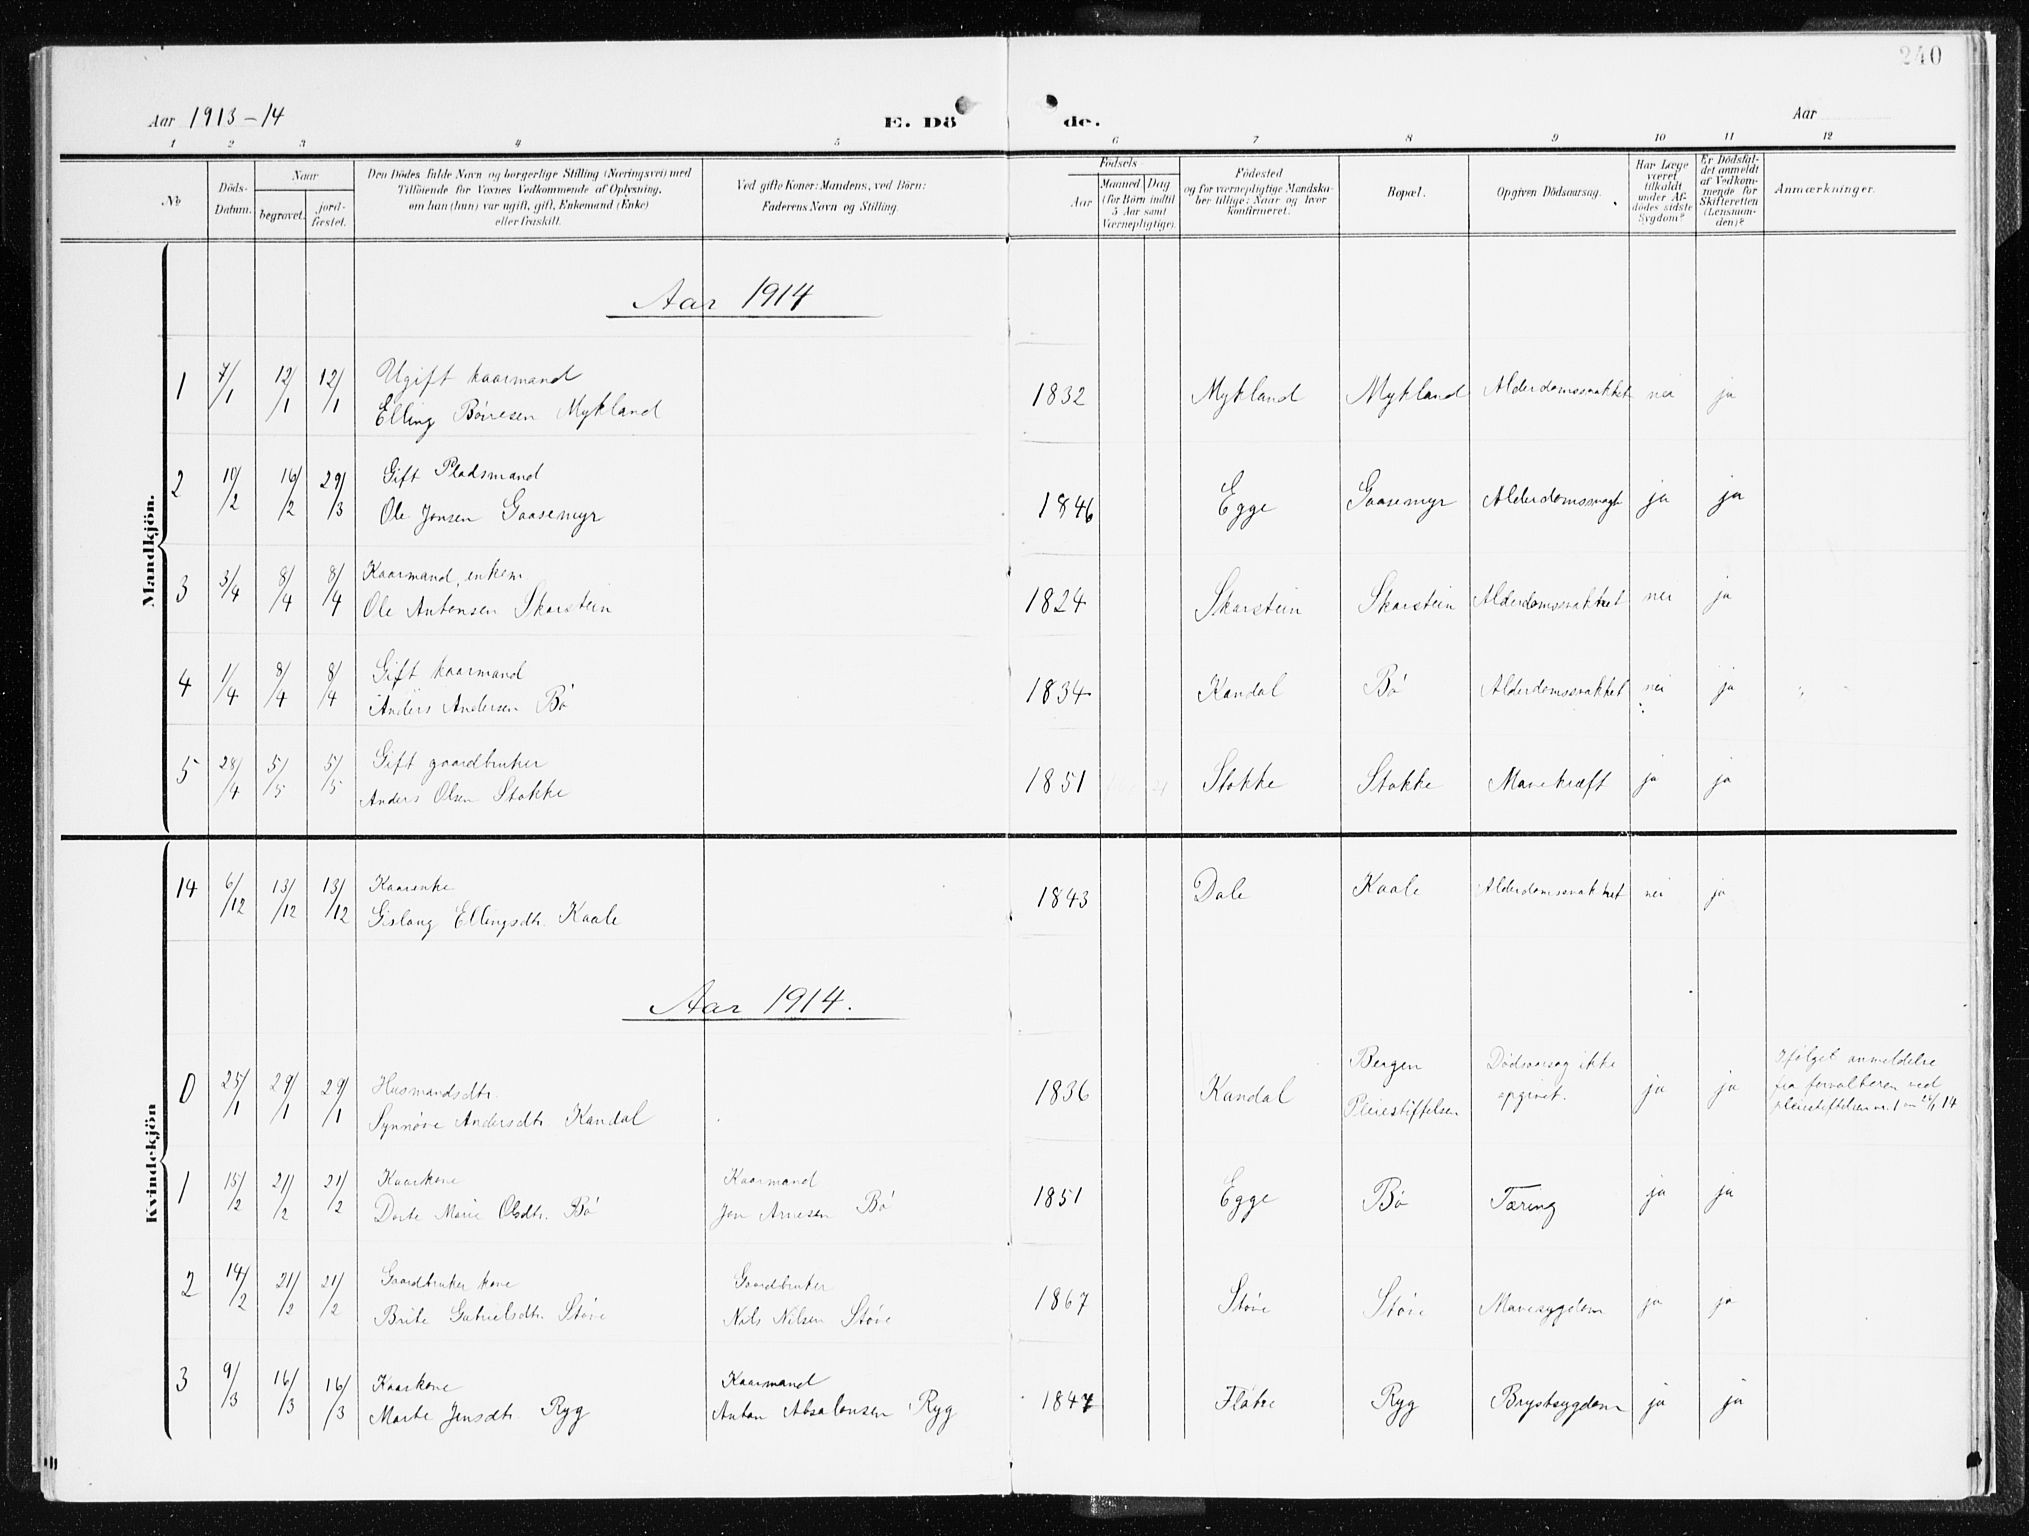 240
Aar 1913-14 E. Dö de. Aar
1 2 3 4 5 6 7 8 9 10 11 12
No
Döds-Datum.
Naar
begravet.
jord-fæstet.
Den Dödes fulde Navn og borgerlige Stilling (Næringsvei) med
Tilföiende for Voxnes Vedkommende af Oplysning,
om han (hun) var ugift, gift, Enkemand (Enke)
eller fraskilt.
Ved gifte Koner: Mandens, ved Börn:
Faderens Navn og Stilling.
Födsels
Aar
Maaned Dag
(for Börn indtil
5 Aar samt
Værnepligtige).
Födested
og for værnepligtige Mandska-
ber tillige: Naar og hvor
konfirmeret.
Bopæl.
Opgiven Dödsaarsag.
Har Læge
været
tilkaldt
under Af-
dödes sidste
Sygdom?
Er Dödsfal-
det anmeldt
af Vedkom-
mende for
Skifteretten
(Lensman-
den)?
Anmærkninger.
Mandkjön.
Aar 1914
1 7/1 12/1 12/1 Ugift kaarmand
Elling Børresen Mykland 1832 Mykland Mykland Alderdomssvakhet nei ja
2 10/2 16/2 29/3 Gift Pladsmand
Ole Jonsen Gaasemyr 1846 Egge Gaasemyr ja ja
3 3/4 8/4 8/4 Kaarmand, enkem
Ole Antonsen Skarstein 1824 Skarstein Skarstein Alderdomssvakhet nei ja
4 1/4 8/4 8/4 Gift kaarmand
Anders Andersen Bø 1834 Kandal Bø Alderdomssvakhet nei ja
5 28/4 5/5 5/5 Gift gaardbruker
Anders Olsen Stokke 1851 Stokke Stokke Mavekræft ja ja
Kvindekjön
14 6/12 13/12 13/12 Kaarenke
Gislaug Ellingsdtr. Kaale 1843 Dale Kaale Alderdomssvakhet nei ja
Aar 1914.
0 25/1 29/1 29/1 Husmandsdtr.
Synnøve Andersdtr. Kandal 1836 Kandal Bergen
Pleiestiftelsen Dødsaarsag ikke
opgivet. ja ja Ifølget anmeldelse
fra forvalteren ved
pleiestiftelsen nr. 1
1 15/2 21/2 21/2 Kaarkone
Dorte Marie Olsdtr. Bø Kaarmand
Jon Arnesen Bø 1851 Egge Bø Tæring ja ja
2 14/2 21/2 21/2 Gaardbruker kone
Brite Gabrielsdtr. Støve Gaardbruker
Nils Nilsen Støve 1867 Støve Støve Mavesygdom ja ja
3 9/3 16/3 16/3 Kaarkone
Marte Jensdtr. Ryg Kaarmand
Anton Absalonsen Ryg 1847 Fløtre Ryg Brystsygdom ja ja